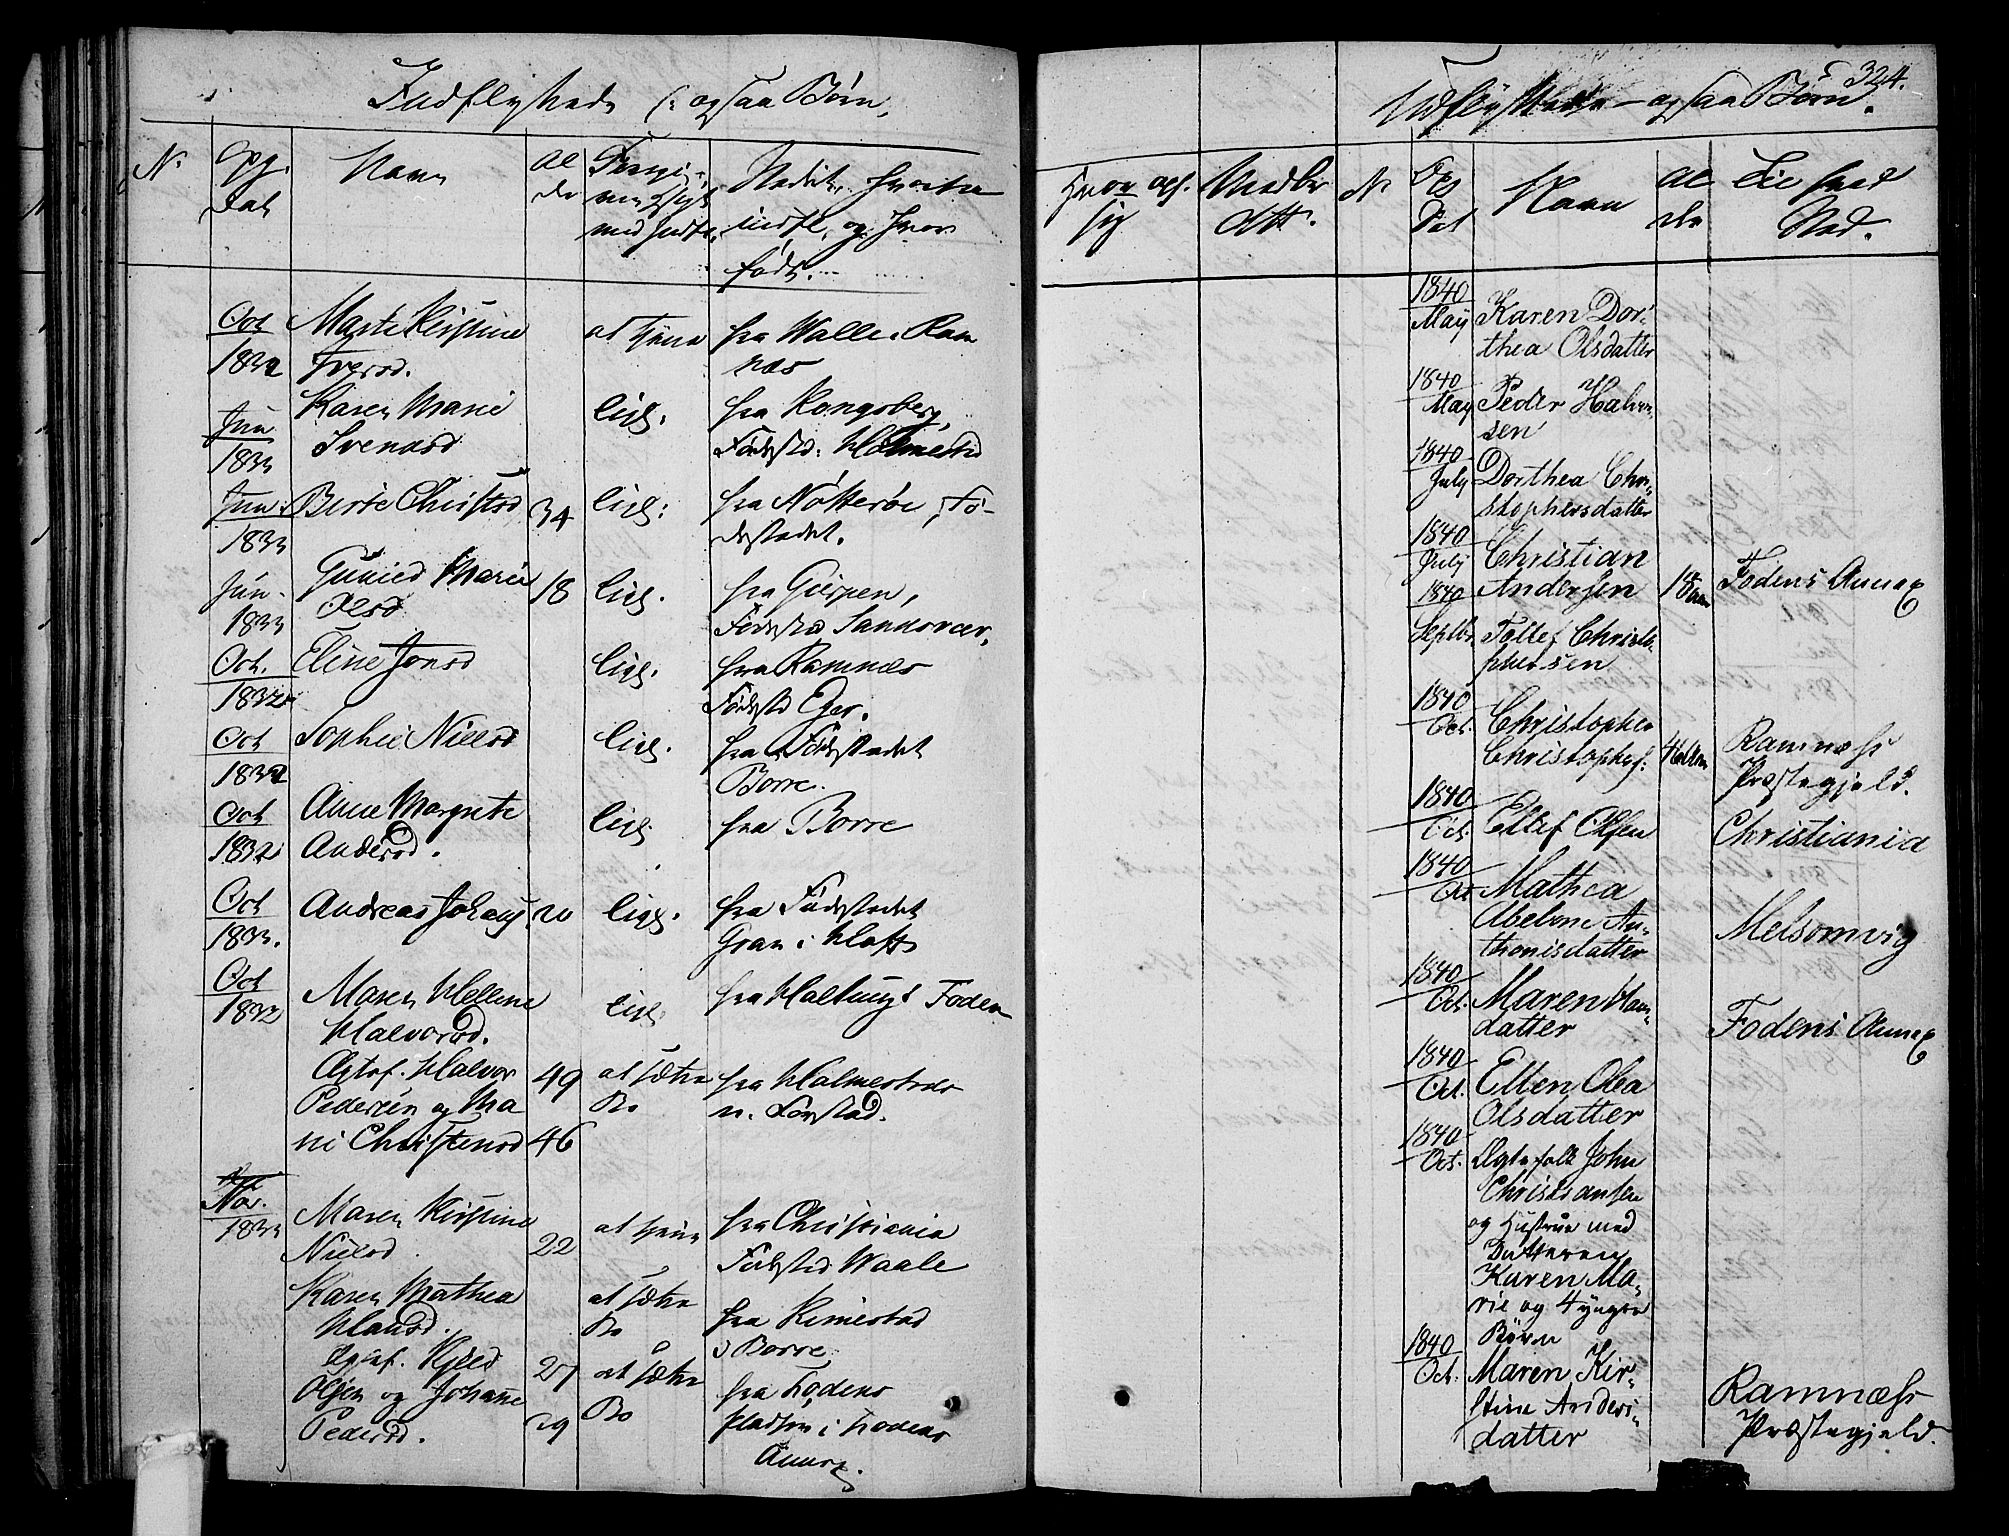 Indflyttede (: ogsaa Børn,
N.
Opg.
Dat
Navn
Al
der
Stedet, hvorfra
indfl. og hvor
født.
Oct
1832
Marte Kirstine
Iversd.
at tjene
fra Walle i Ram
næs
Jun
1833
Karen Marie
Svensd
lige.
fra Kongsberg,
Fødested: Holmestrd
Jun
1833
Birte Christsd
34
lige:
fra Nøtterøe, Fø-
destedet.
Jun.
1833
Gunild Marie
Olsd
18
lige.
fra Gierpen,
Fødested Sandsvær.
Oct.
1832
Eline Jonsd
lige.
fra Ramnæs
Fødested Eger.
Oct
1832
Sophie Nielsd
lige.
fra Fødestedet
Borre.
Oct
1832
Anne Margrete
Andersd.
lige.
fra Borre
Oct
1833.
Andreas Johans
20
lige.
fra Fødestedet
Gran i
Oct
1832
Maren Hellene
Halvorsd.
lige.
fra
Foden
Ægtef. Halvor
Pedersen og Ma
ri Christensd
49
46
at sætte
Bo
fra Holmestrd
Nov.
1833
Maren Kirstine
Nielsd.
22
at tjene
fra Christiania
Fødested Waale
Karen Mathea
Hansd.
at sætte
Bo
fra Kimestad
i Borre
Ægtef. Kield
Olsen og Johanne
Pedersd.
27
29
at sætte
Bo
fra Fodens
Pladsen i Fodens
Annex.
324.
Udflyttede - ogsaa Børn.
hvor opf.
sig
N.
Dat
Navn
Al
der
Til hvad
Sted.
1840
May
Karen Dor-
thea Olsdatter
1840
May
Peder Halvor-
sen
1840
July
Dorthea Chri-
stophersdatter
1840
July
Christian
Andersen
18
Fodens Annex
1840
Septbr.
Tollef Christo-
phersen
1840
Oct.
Christopher
Christophers:
Ramnæss
Præstegjeld.
1840
Oct.
Ellef Olsen
Christiania
1840
Oct
Mathea
Abelone An-
thonisdatter
Melsomvig
1840
Oct.
Maren Han-
datter
Fodens Annex
1840
Oct.
Ellen Olea
Olsdatter
1840
Oct.
Ægtefolk John
Christiansen
og Hustrue med
Datteren
Karen Ma-
rie og 4 yngre
Børn
1840
Oct.
Maren Kir-
stine Anders-
datter
Ramnæss
Præstegjeld.